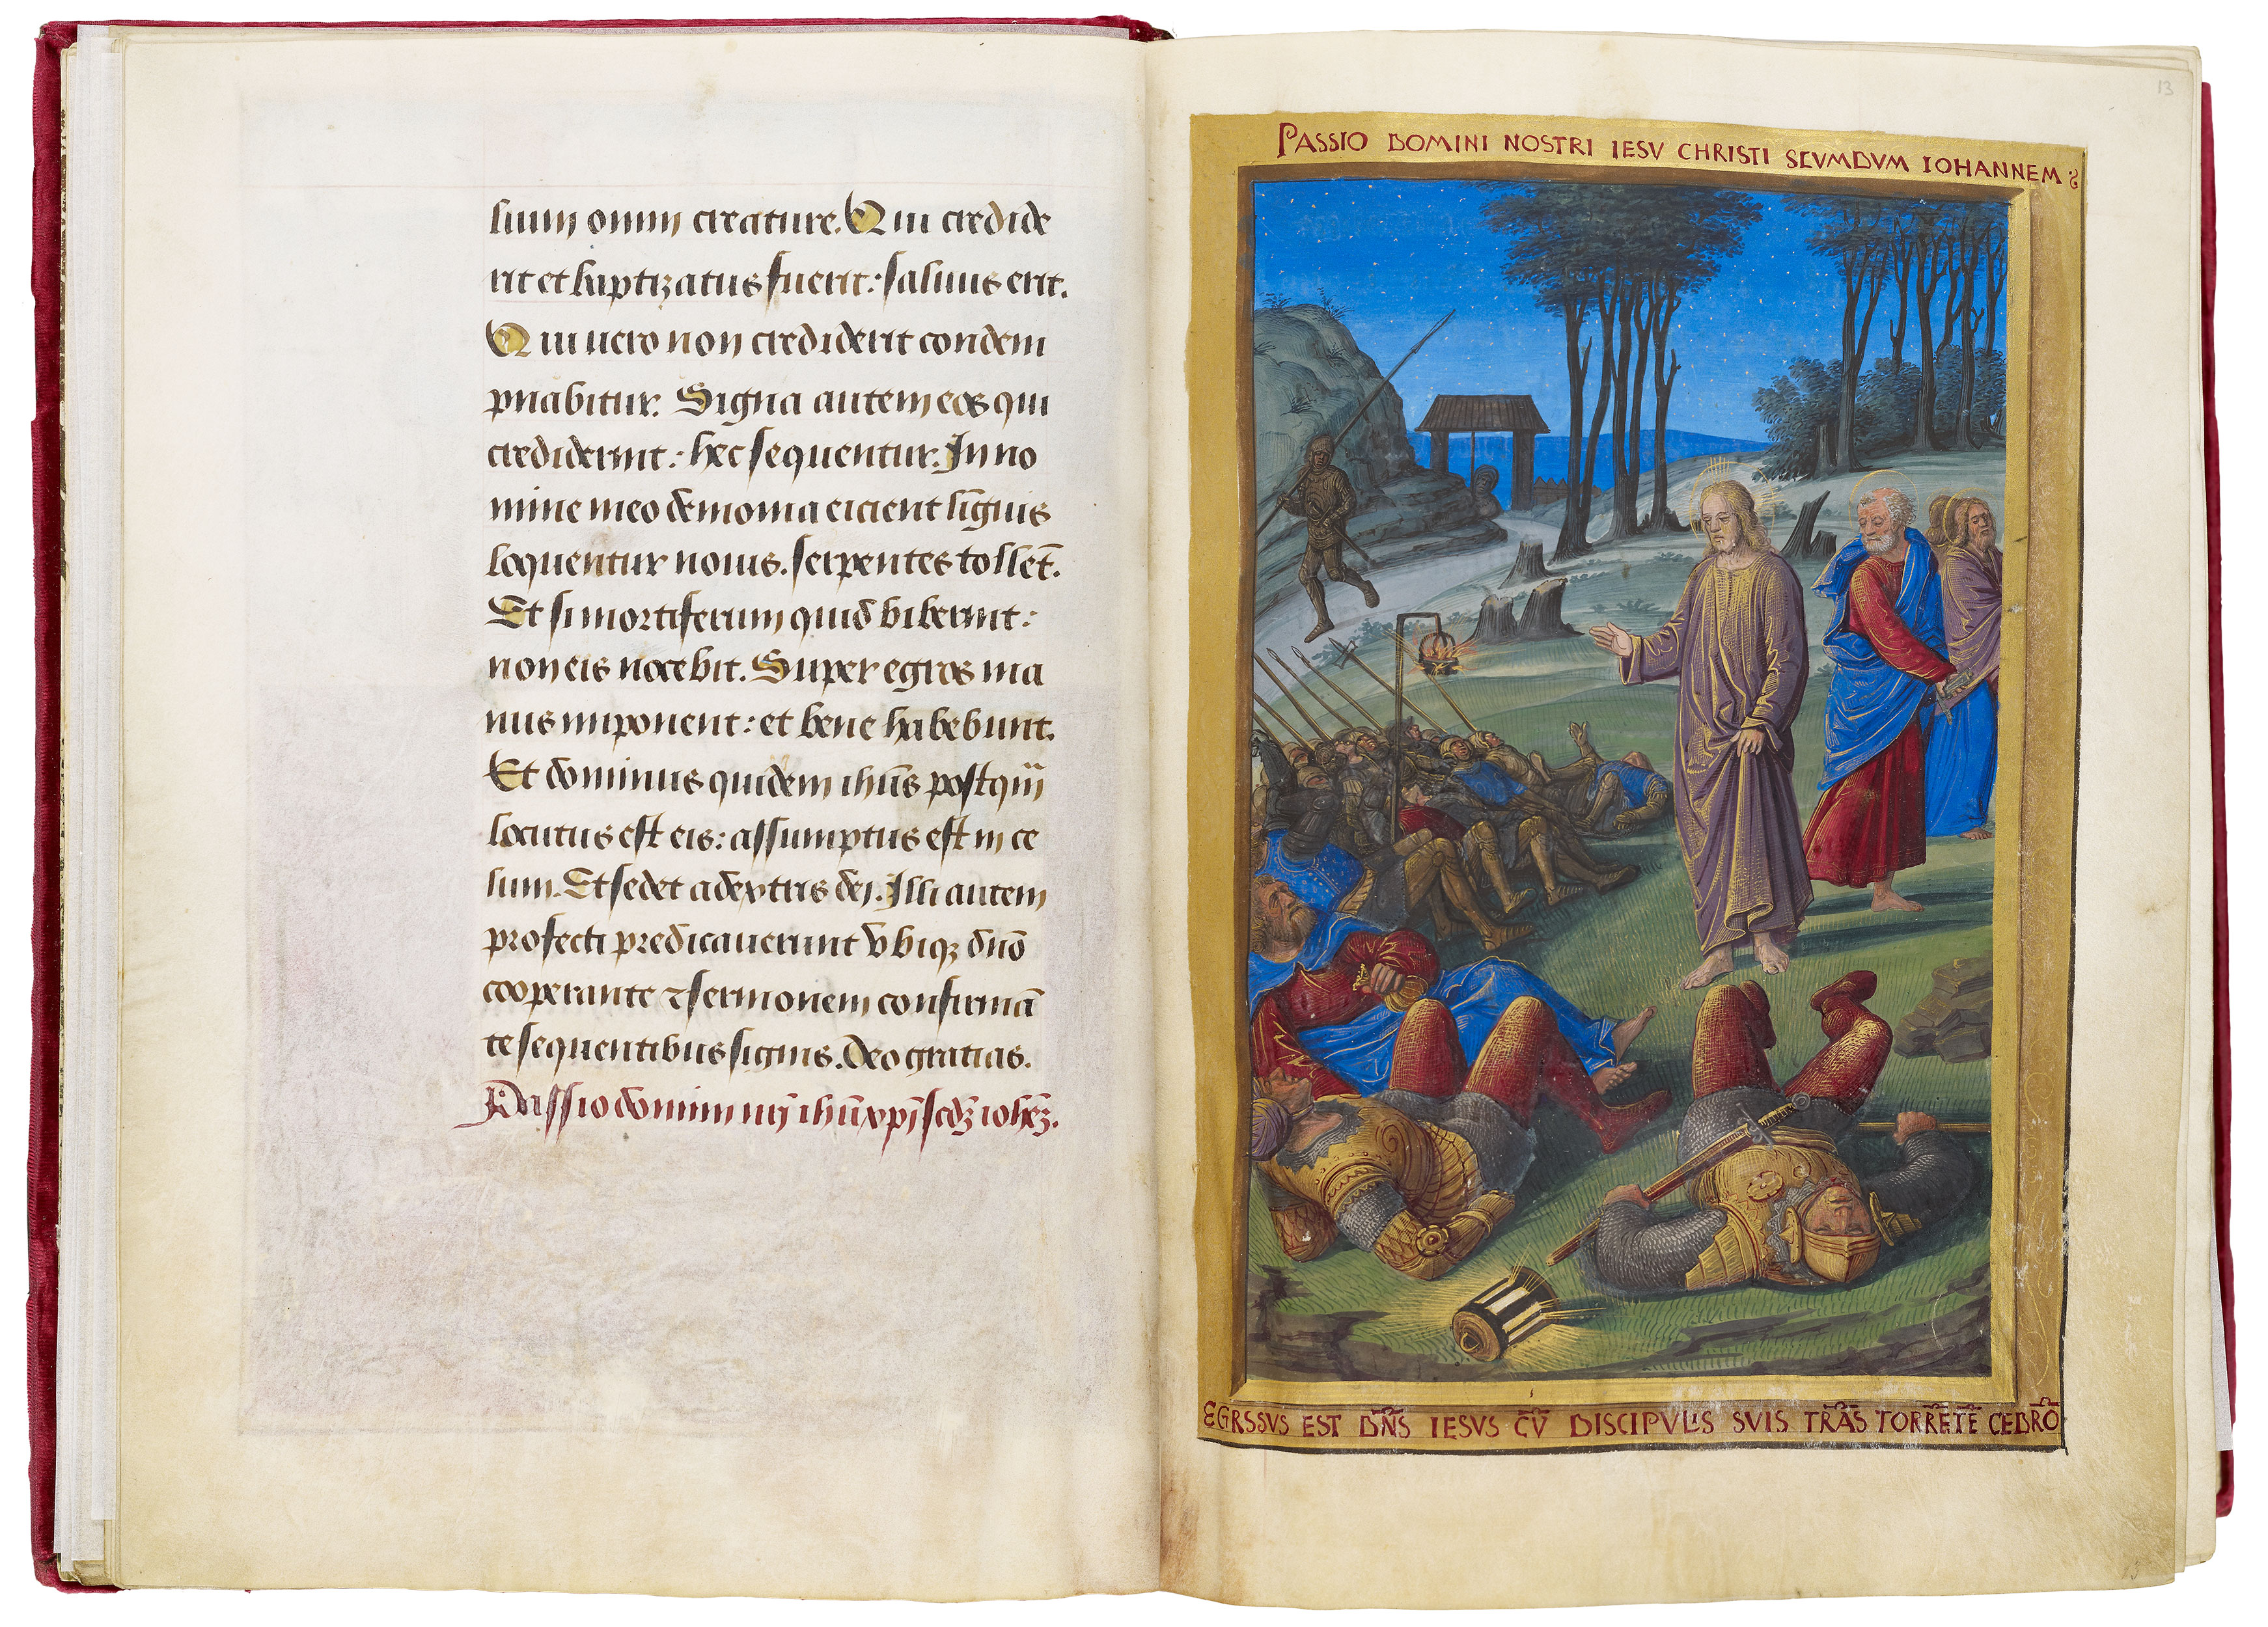 lium omni creature. Qui credide
rit et baptizatus fuerit: saluus erit.
Qui uero non crediderit condem
pnabitur. Signa autem eos qui
crediderint: hec sequentur. In no
mine meo demonia eicient linguis
loquentur nouis. serpentes tollēt.
Et si mortiferum quid biberint:
non eis nocebit. Super egros ma
nus imponent: et bene habebunt.
Et dominus quidem ihūs postqm̄
locutus est eis: assumptus est in ce
lum. Et sedet a dextris dei. Illi autem
profecti predicauerunt vbiqȝ dn̄o
cooperante ⁊ sermonem confirmā
te sequentibus signis. Deo gratias.
Passio domini nr̄i ihū xp̄i scdȝ iohēȝ.
13
PASSIO DOMINI NOSTRI IESV CHRISTI SCVMDVM IOHANNEM
EGRSSVS EST DN̄S IESVS CV̄ DISCIPVLIS SVIS TRĀS TORRĒTĒ CEDRŌ